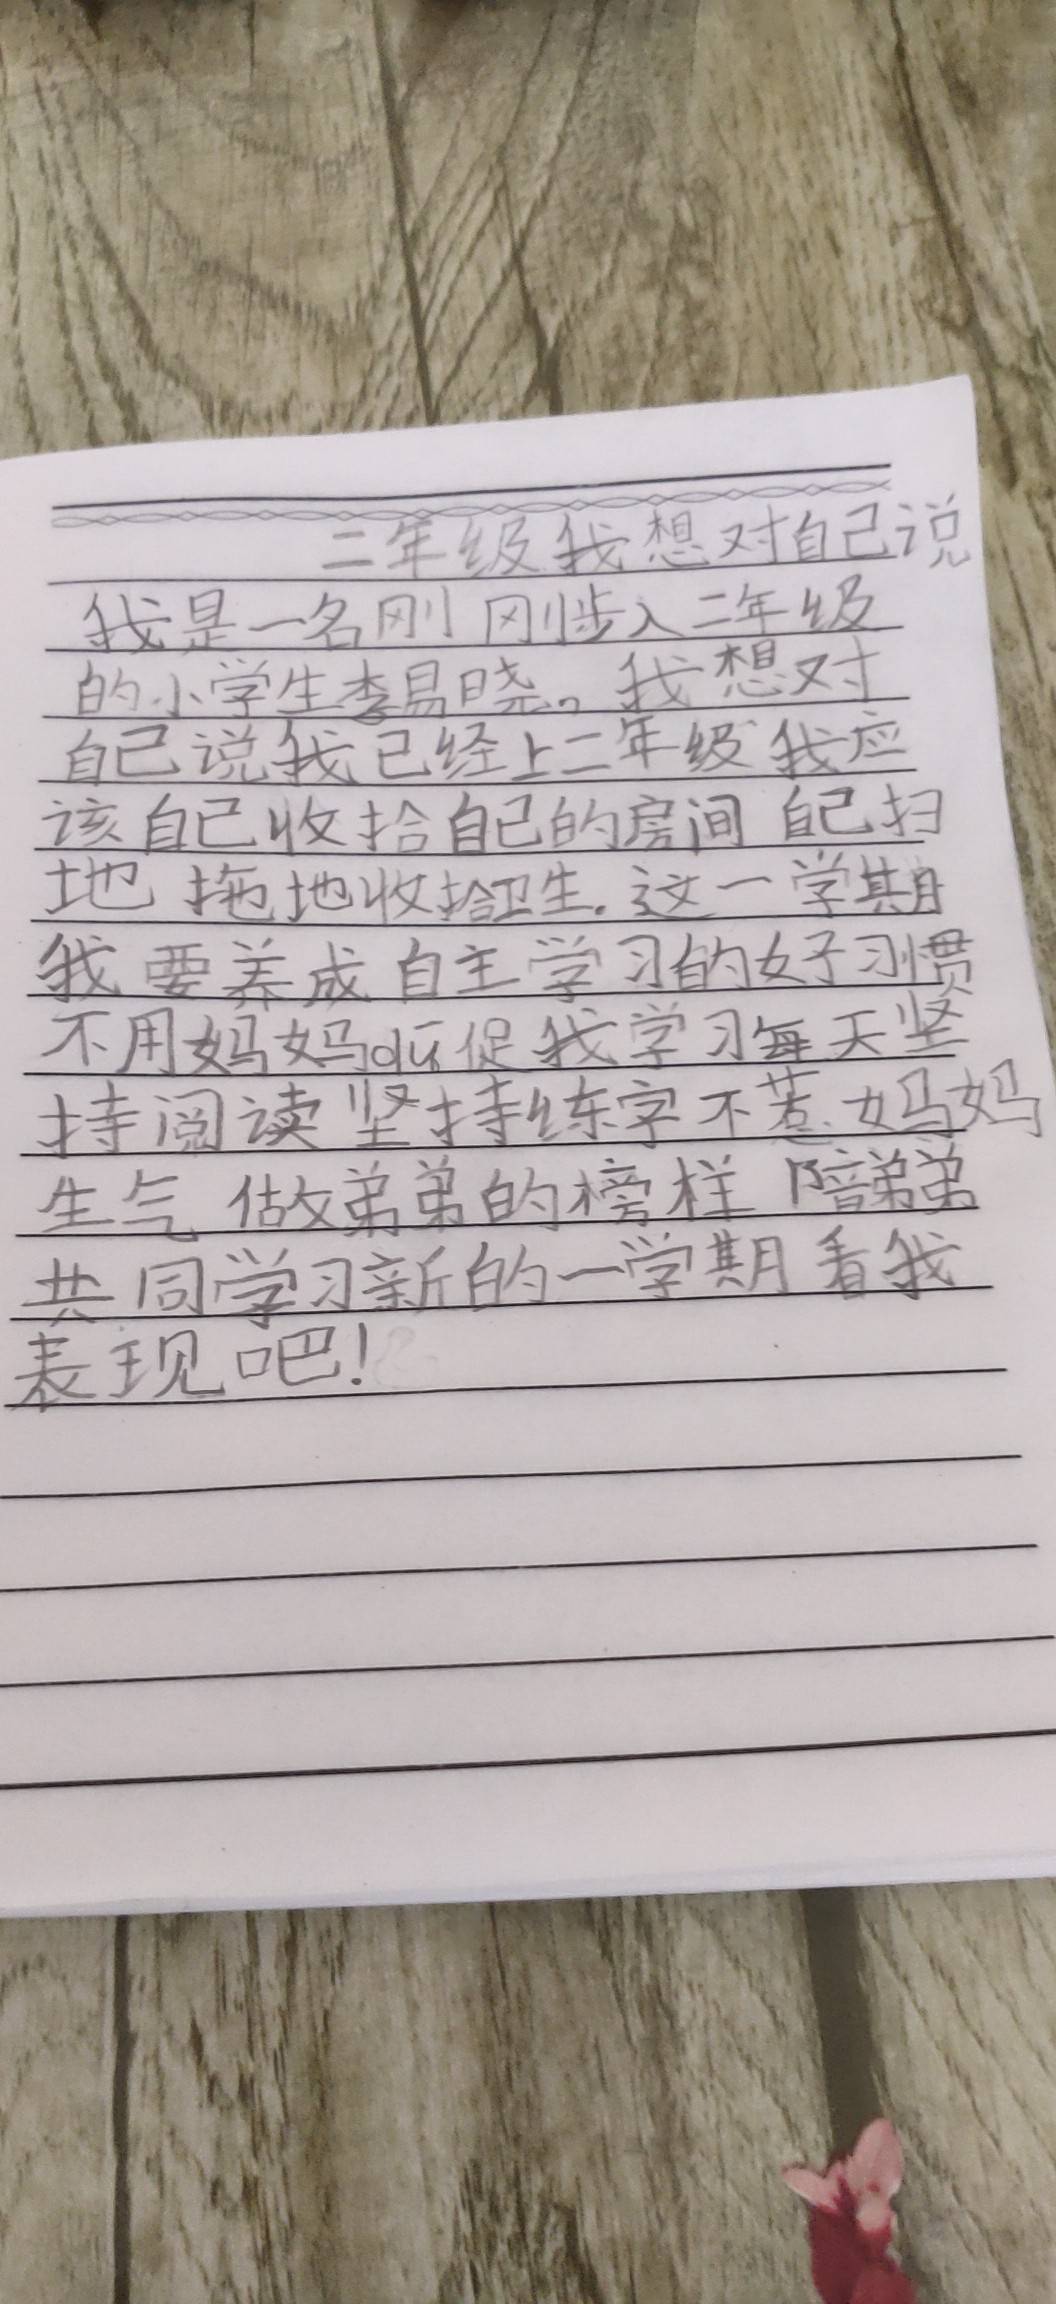 二年级我想对自己说
我是一名刚刚步入二年级
的小学生李易晓。我想对
自己说我已经上二年级我应
该自己收拾自己的房间自己扫
地拖地收拾卫生.这一学期
我要养成自主学习的好习惯
不用妈妈dū促我学习每天坚
持阅读坚持练字不惹妈妈
生气做弟弟的榜样陪弟弟
共同学习新的一学期看我
表现吧!